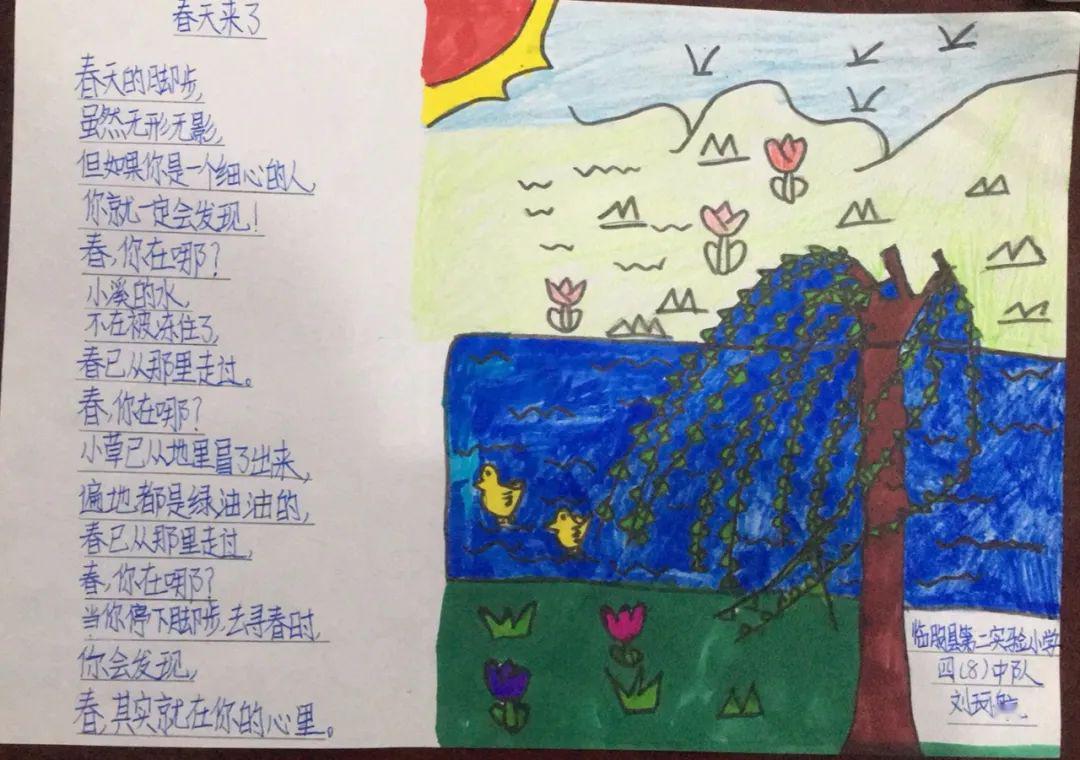 春天来了
春天的脚步,
虽然无形无影,
但如果你是一个细心的人,
你就一定会发现!
春,你在哪?
小溪的水,
不在被冻住了,
春已从那里走过。
春,你在哪?
小草已从地里冒了出来,
遍地都是绿油油的,
春已从那里走过,
春,你在哪?
当你停下脚步,去寻春时,
你会发现,
春,其实就在你的心里。
临朐县第二实验小学
四(8)中队
刘